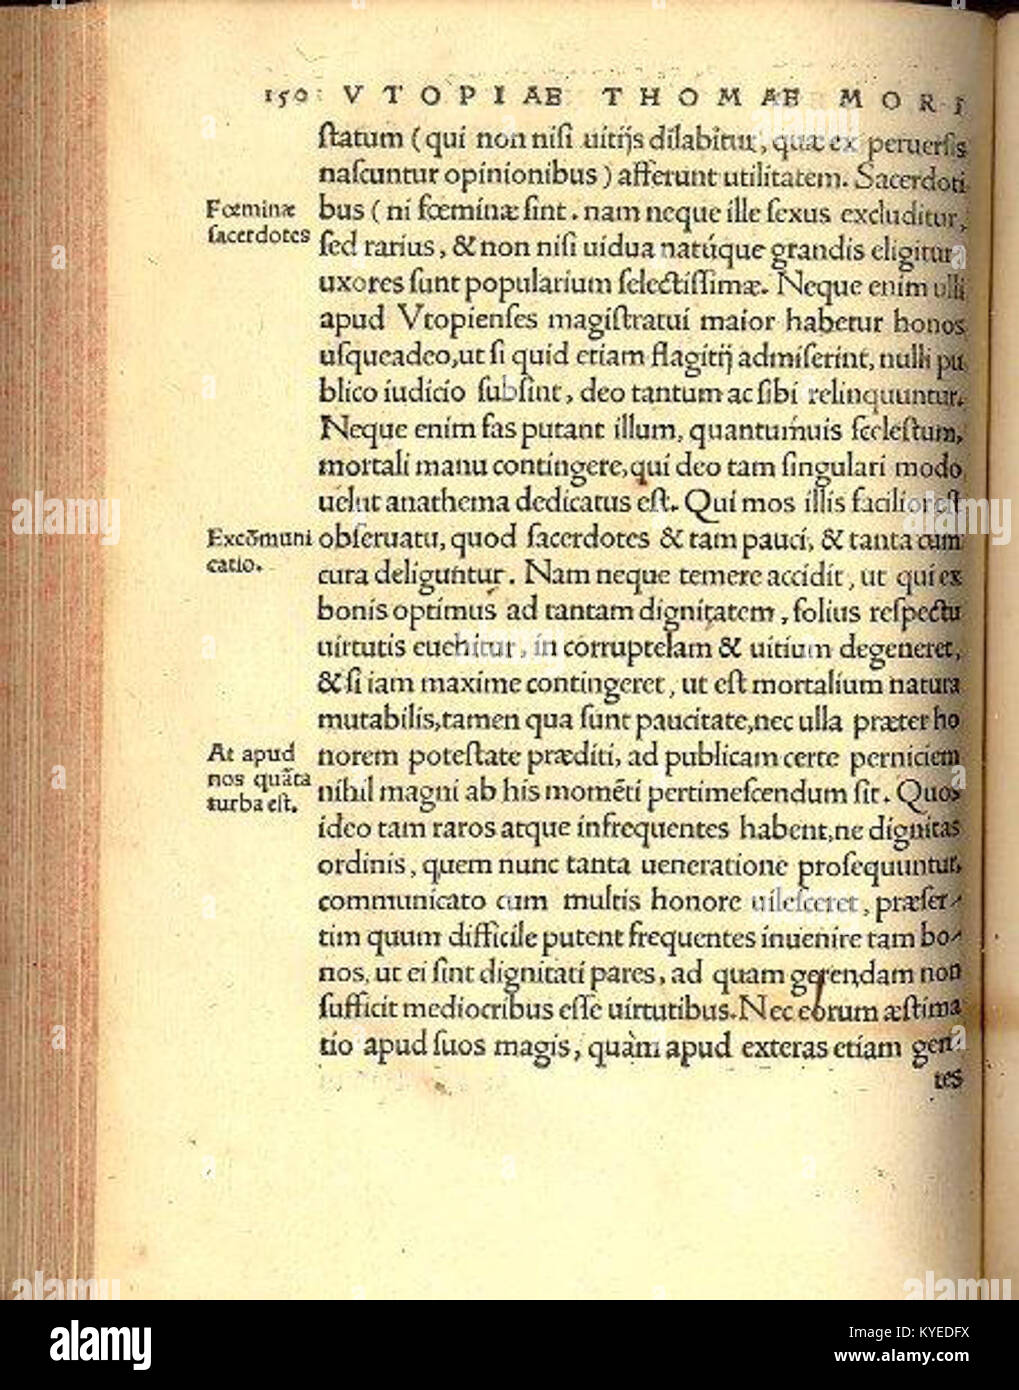 150 VTOPIÆ THOMÆ MORI
ſtatum (qui non niſi uitijs dilabitur, quæ ex peruerſis
naſcuntur opinionibus) afferunt utilitatem. Sacerdoti
Fœminæ
ſacerdotes
bus (ni fœminæ ſint. nam neque ille ſexus excluditur,
ſed rarius, & non niſi uidua natúque grandis eligitur
uxores ſunt popularium ſelectiſſimæ. Neque enim ulli
apud Vtopienſes magiſtratui maior habetur honos
uſqueadeo,ut ſi quid etiam flagitij admiſerint, nulli pu
blico iudicio ſubſint, deo tantum ac ſibi relinquuntur.
Neque enim fas putant illum, quantumuis ſceleſtum,
mortali manu contingere,qui deo tam ſingulari modo
uelut anathema dedicatus eſt. Qui mos illis facilior eſt
Excōmuni
catio.
obſeruatu, quod ſacerdotes & tam pauci, & tanta cum
cura deliguntur. Nam neque temere accidit, ut qui ex
bonis optimus ad tantam dignitatem, ſolius reſpectu
uirtutis euehitur, in corruptelam & uitium degeneret,
& ſi iam maxime contingeret, ut eſt mortalium natura
mutabilis,tamen qua ſunt paucitate,nec ulla præter ho
At apud
nos quāta
turba eſt.
norem poteſtate præditi, ad publicam certe perniciem
nihil magni ab his momēti pertimeſcendum ſit. Quos
ideo tam raros atque infrequentes habent,ne dignitas
ordinis, quem nunc tanta ueneratione proſequuntur,
communicato cum multis honore uileſceret, præſer-
tim quum difficile putent frequentes inuenire tam bo-
nos, ut ei ſint dignitati pares, ad quam gerendam non
ſufficit mediocribus eſſe uirtutibus. Nec eorum æſtima
tio apud ſuos magis, quàm apud exteras etiam gen-
tes
alamy
Image ID: KYEDFX
www.alamy.com